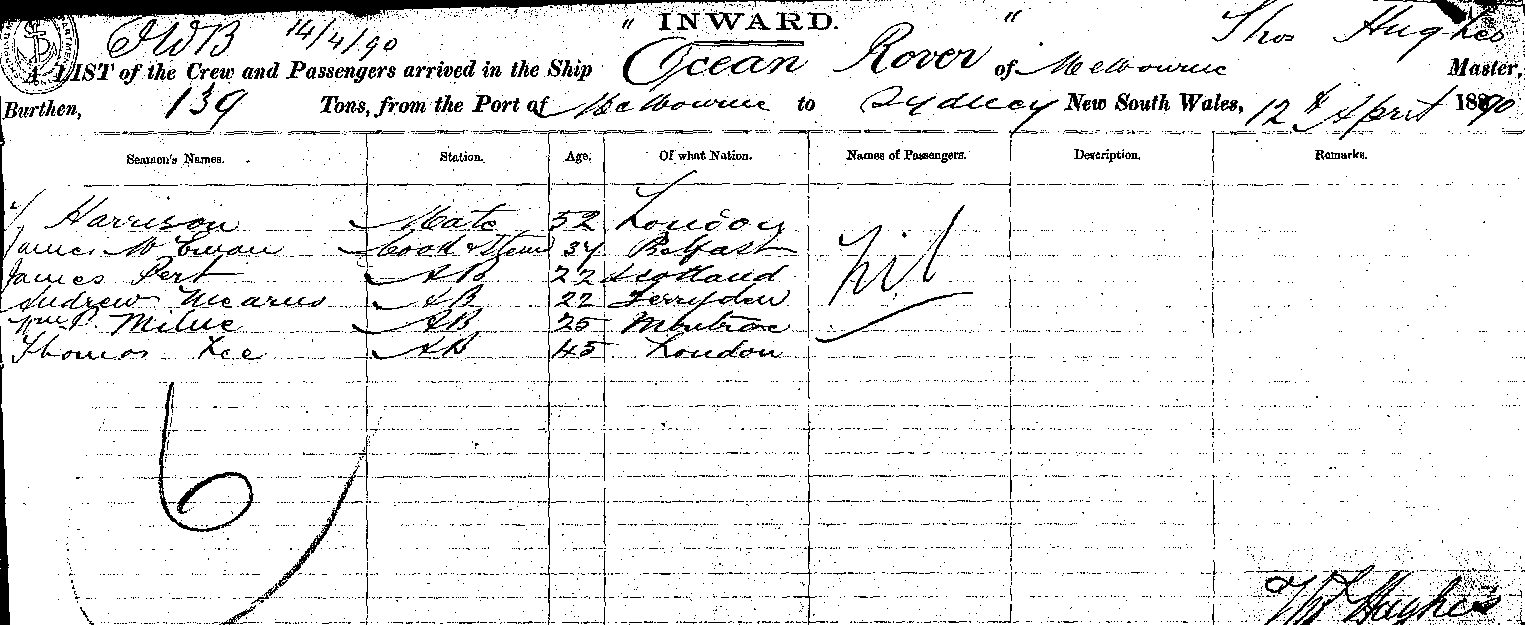 JWB 14/4/90 INWARD. Thos Hughes
A LIST of the Crew and Passengers arrived in the Ship "Ocean Rover" of Melbourne Master,
Burthen, 139 Tons, from the Port of Melbourne to Sydney New South Wales, 12th April 1890
Seamen's Names. Station. Age. Of what Nation. Names of Passengers. Description. Remarks.
Harrison Mate 52 London nil
James McEwan Cook & Stewd 34 Belfast
James Pert AB 22 Scotland
Andrew Mearns AB 22 Ferryden
Wm P. Milne AB 25 Montrose
Thomas Lee AB 45 London
6
Thos Hughes